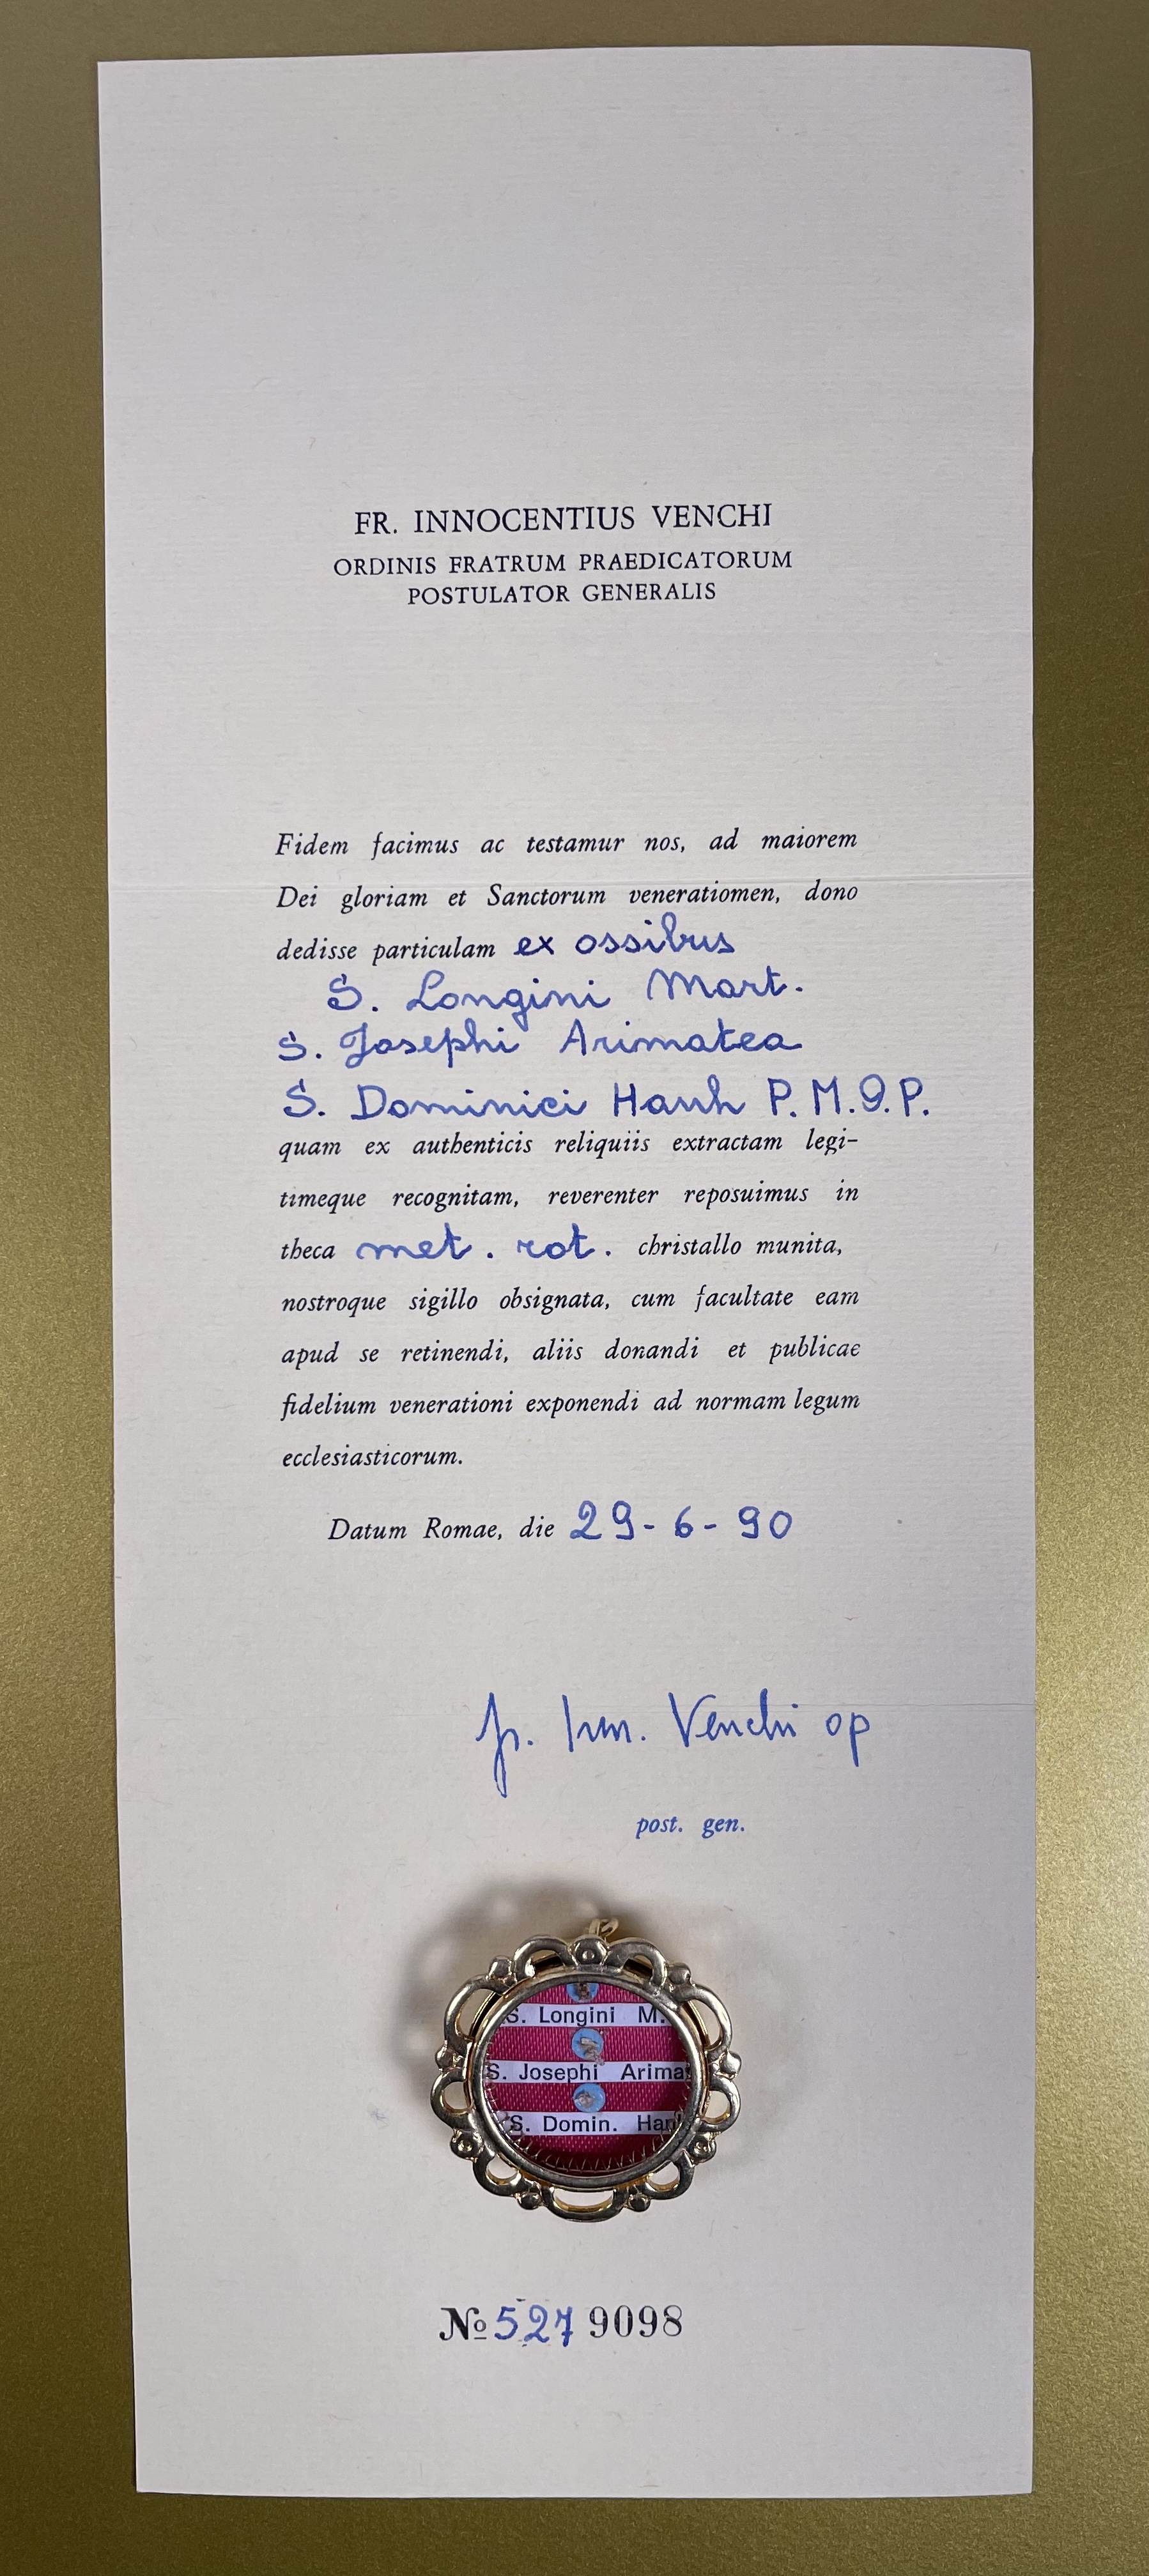 FR. INNOCENTIUS VENCHI
ORDINIS FRATRUM PRAEDICATORUM
POSTULATOR GENERALIS
Fidem facimus ac testamur nos, ad maiorem
Dei gloriam et Sanctorum veneratiomen, dono
dedisse particulam ex ossibus
S. Longini Mart.
S. Josephi Arimatea
S. Dominici Hanh P. M. O. P.
quam ex authenticis reliquiis extractam legi-
timeque recognitam, reverenter reposuimus in
theca met. rot. christallo munita,
nostroque sigillo obsignata, cum facultate eam
apud se retinendi, aliis donandi et publicae
fidelium venerationi exponendi ad normam legum
ecclesiasticorum.
Datum Romae, die 29-6-90
fr. Inn. Venchi op
post. gen.
S. Longini M.
S. Josephi Arima
S. Domin. Han
№ 527 9098